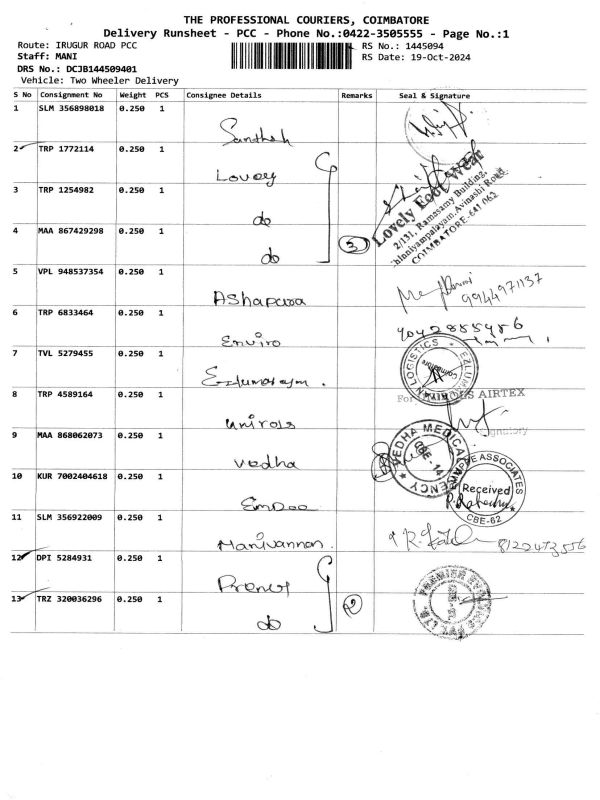 THE PROFESSIONAL COURIERS, COIMBATORE
Delivery Runsheet - PCC - Phone No.:0422-3505555 - Page No.:1
Route: IRUGUR ROAD PCC
RS No.: 1445094
Staff: MANI
RS Date: 19-Oct-2024
DRS No.: DCJB144509401
Vehicle: Two Wheeler Delivery
S No Consignment No Weight PCS Consignee Details Remarks Seal & Signature
1 SLM 356898018 0.250 1
Santhosh
2 TRP 1772114 0.250 1
Lovely
3 TRP 1254982 0.250 1
do
Lovely Foot Wear
2/131, Ramasamy Building,
Chinniyampalayam, Avinashi Road
COIMBATORE-641 062
4 MAA 867429298 0.250 1
do
3
5 VPL 948537354 0.250 1
Ashapura
9944971137
6 TRP 6833464 0.250 1
Enviro
7 TVL 5279455 0.250 1
LOGISTICS
Coimbatore
8 TRP 4589164 0.250 1
Unirols
For UNIROLS AIRTEX
Signatory
9 MAA 868062073 0.250 1
Vedha
VEDHA MEDICAL AGENCY
CBE-14
10 KUR 7002404618 0.250 1
EmDee
ASSOCIATES
Received
CBE-62
11 SLM 356922009 0.250 1
Manivannan
8122473556
12 DPI 5284931 0.250 1
13 TRZ 320036296 0.250 1
do
2
PREMIER